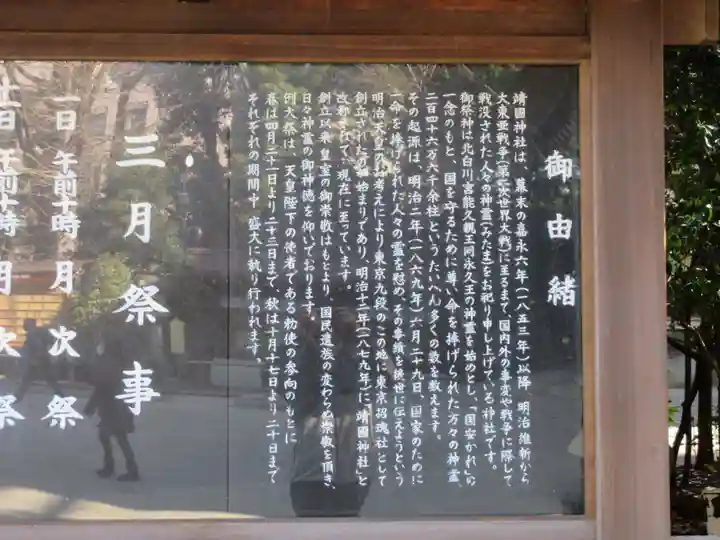 御由緒
靖國神社は、幕末の嘉永六年(一八五三年)以降、明治維新から
大東亜戦争(第二次世界大戦)に至るまで、国内外の事変や戦争に際して
戦没された人々の神霊(みたま)をお祀り申し上げている神社です。
御祭神は北白川宮能久親王同永久王の神霊を始めとし、「国安かれ」の
一念のもと、国を守るために尊い命を捧げられた方々の神霊、
二百四十六万六千余柱というたいへん多くの数を数えます。
その起源は、明治二年(一八六九年)六月二十九日、国家のために
一命を捧げられた人々の霊を慰め、その事績を後世に伝えようという
明治天皇のお考えにより東京九段のこの地に東京招魂社として
創立されたのが始まりであり、明治十二年(一八七九年)に「靖國神社」と
改称されて、現在に至っています。
創立以来、皇室の御崇敬はもとより、国民遺族の変わらぬ崇敬を頂き、
日々神霊の御神徳を仰いでおります。
例大祭は、天皇陛下の使者である勅使の参向のもとに
春は四月二十一日より二十三日まで、秋は十月十七日より二十日まで
それぞれの期間中、盛大に執り行われます。
三月祭事
一日 午前十時 月次祭
十一日 午前十時 月次祭